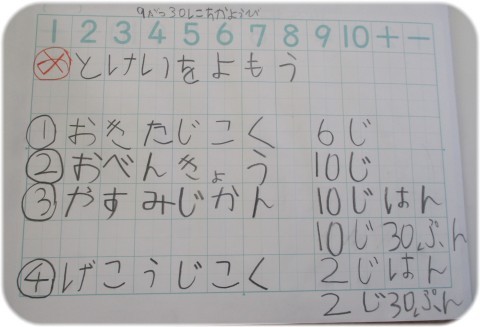 9がつ30にちかようび
1 2 3 4 5 6 7 8 9 10 + −
め とけいをよもう
① おきたじこく 6じ
② おべんきょう 10じ
③ やすみじかん 10じはん
10じ30ぷん
④ げこうじこく 2じはん
2じ30ぷん